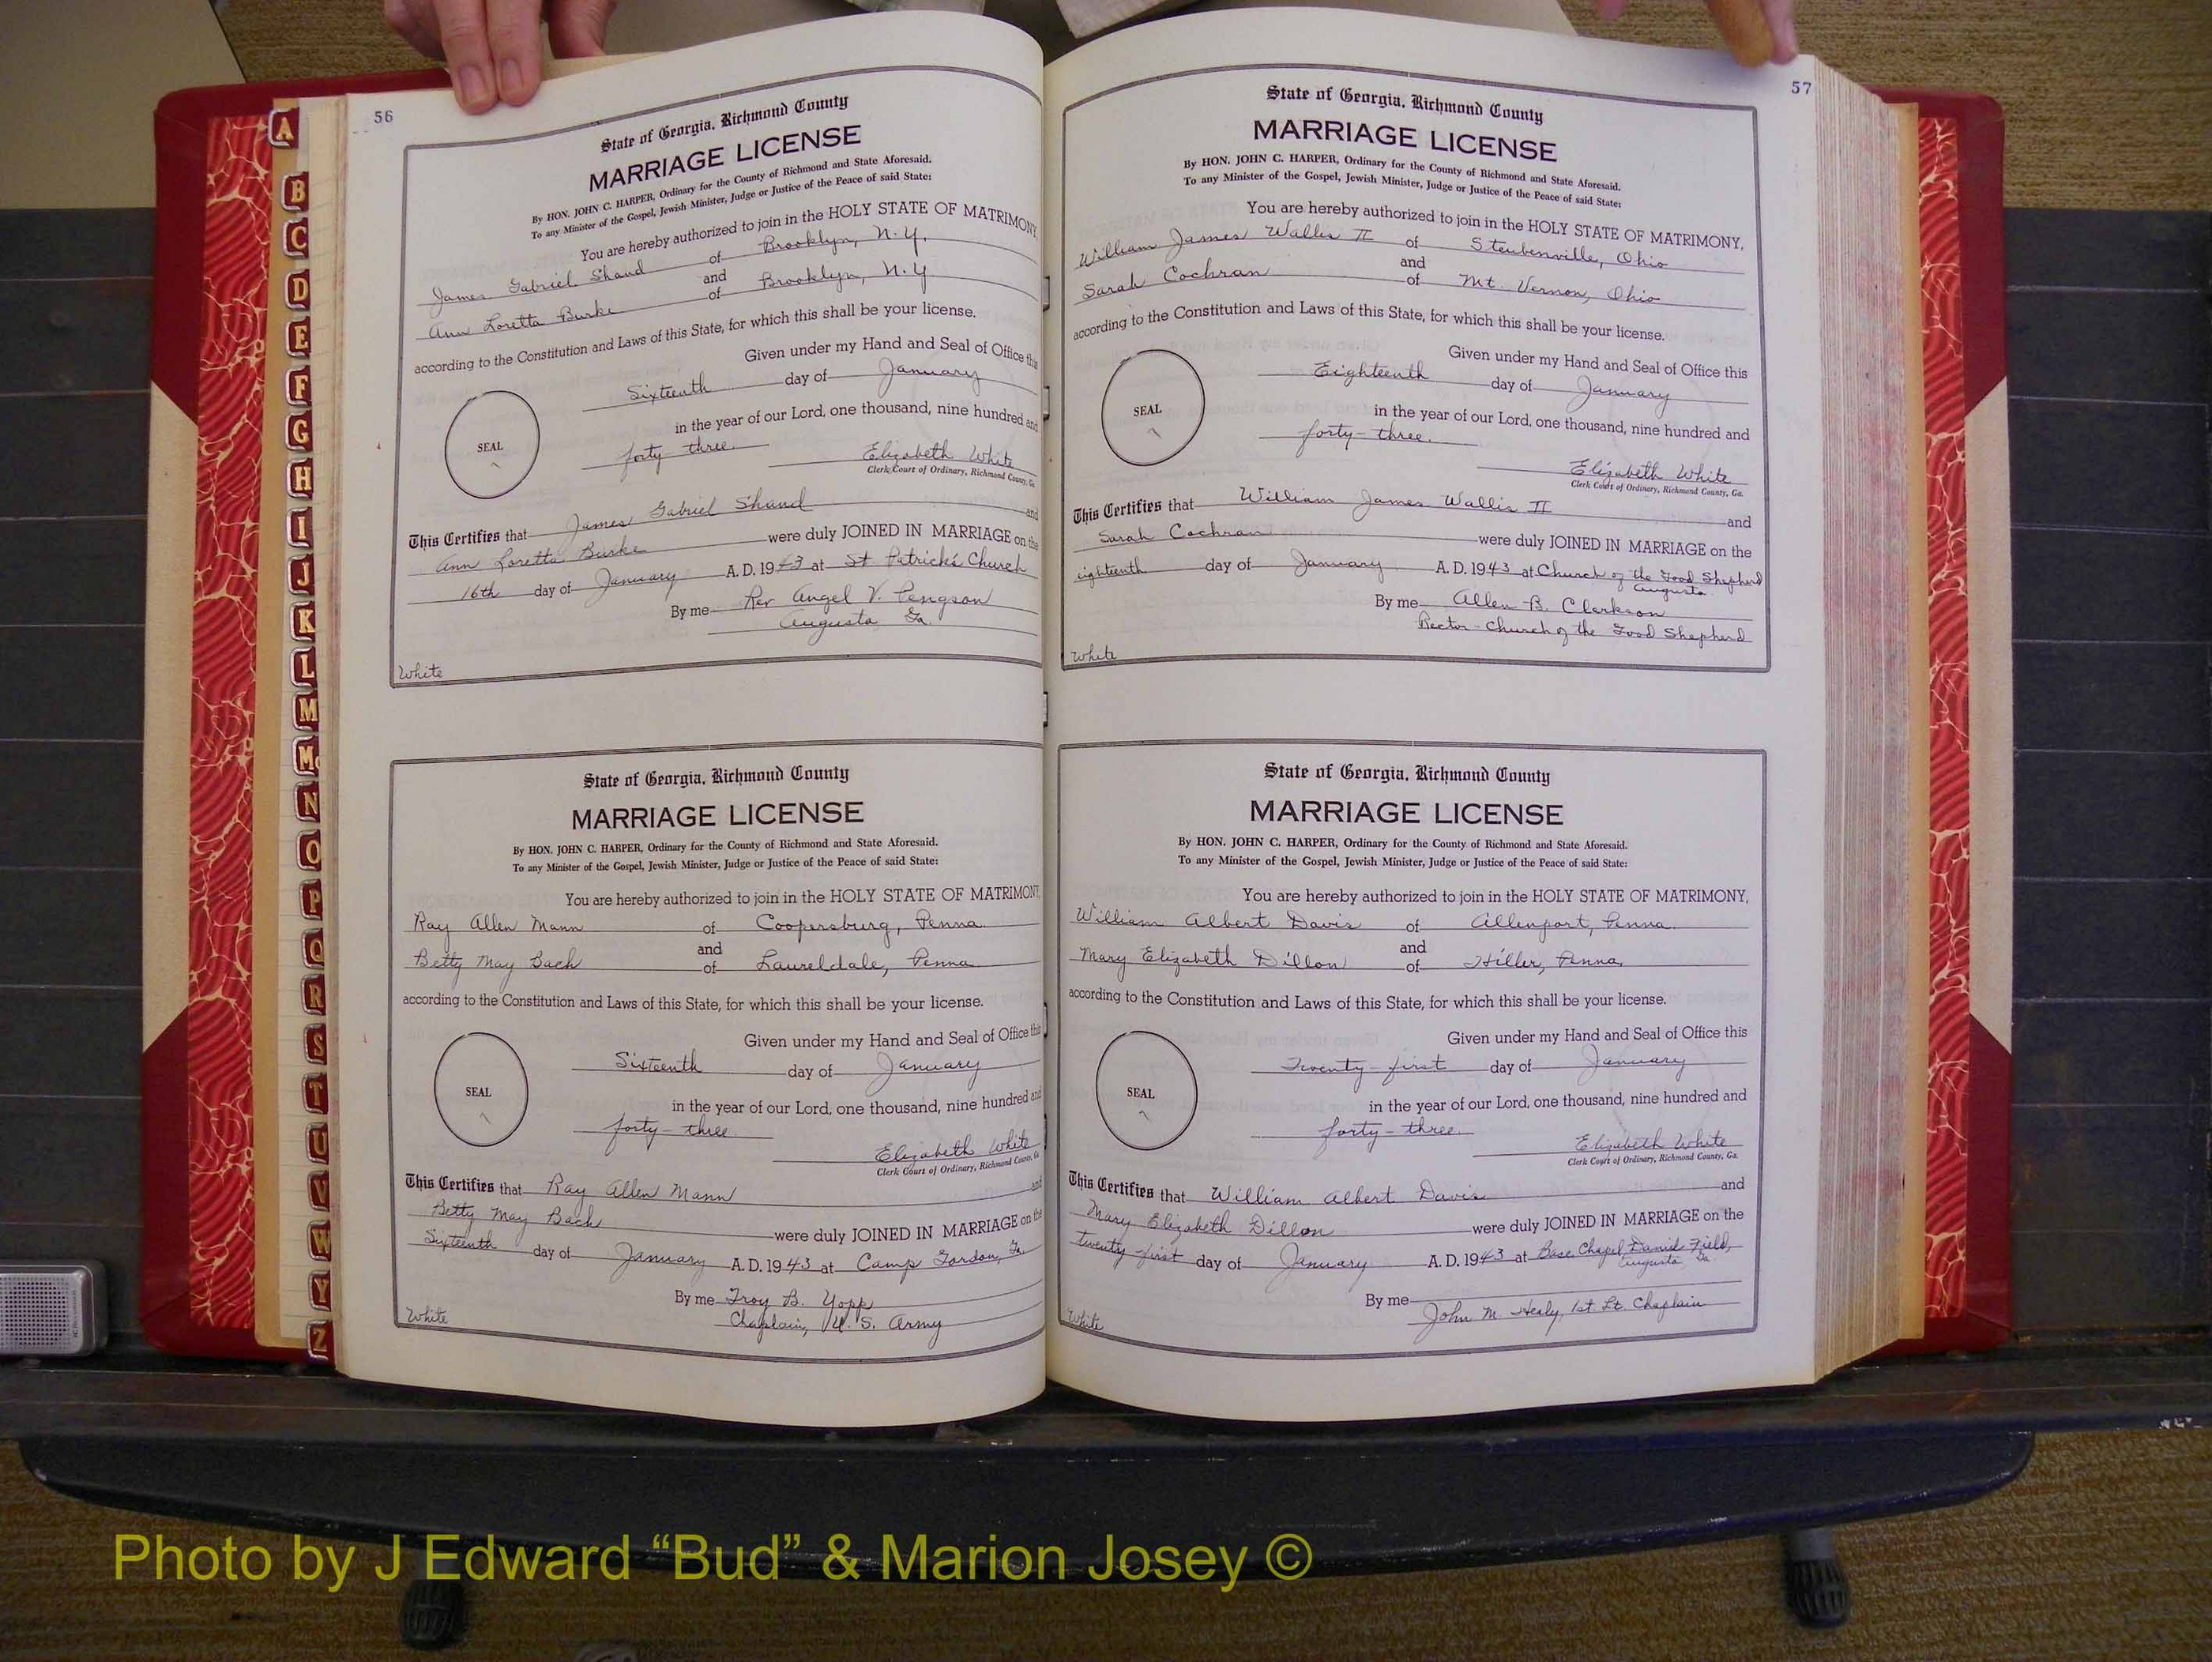 56
State of Georgia, Richmond County
MARRIAGE LICENSE
By HON. JOHN C. HARPER, Ordinary for the County of Richmond and State Aforesaid.
To any Minister of the Gospel, Jewish Minister, Judge or Justice of the Peace of said State:
You are hereby authorized to join in the HOLY STATE OF MATRIMONY,
James Gabriel Shand of Brooklyn, N.Y.
and
Ann Loretta Burke of Brooklyn, N.Y
according to the Constitution and Laws of this State, for which this shall be your license.
Given under my Hand and Seal of Office this
Sixteenth day of January
SEAL
in the year of our Lord, one thousand, nine hundred and
forty three.
Elizabeth White
Clerk Court of Ordinary, Richmond County, Ga.
This Certifies that James Gabriel Shand and
Ann Loretta Burke were duly JOINED IN MARRIAGE on the
16th day of January A. D. 1943 at St Patrick's Church
By me Rev Angel V. Pengson
Augusta Ga.
White
State of Georgia, Richmond County
MARRIAGE LICENSE
By HON. JOHN C. HARPER, Ordinary for the County of Richmond and State Aforesaid.
To any Minister of the Gospel, Jewish Minister, Judge or Justice of the Peace of said State:
You are hereby authorized to join in the HOLY STATE OF MATRIMONY,
Ray Allen Mann of Coopersburg, Penna.
and
Betty May Bach of Laureldale, Penna
according to the Constitution and Laws of this State, for which this shall be your license.
Given under my Hand and Seal of Office this
Sixteenth day of January
SEAL
in the year of our Lord, one thousand, nine hundred and
forty-three.
Elizabeth White
Clerk Court of Ordinary, Richmond County, Ga
This Certifies that Ray Allen Mann and
Betty May Bach were duly JOINED IN MARRIAGE on the
Sixteenth day of January A. D. 1943 at Camp Gordon, Ga.
By me Troy B. Yopp
Chaplain, U. S. Army
White
57
State of Georgia, Richmond County
MARRIAGE LICENSE
By HON. JOHN C. HARPER, Ordinary for the County of Richmond and State Aforesaid.
To any Minister of the Gospel, Jewish Minister, Judge or Justice of the Peace of said State:
You are hereby authorized to join in the HOLY STATE OF MATRIMONY,
William James Wallis II of Steubenville, Ohio
and
Sarah Cochran of Mt. Vernon, Ohio
according to the Constitution and Laws of this State, for which this shall be your license.
Given under my Hand and Seal of Office this
Eighteenth day of January
SEAL
in the year of our Lord, one thousand, nine hundred and
forty-three.
Elizabeth White
Clerk Court of Ordinary, Richmond County, Ga.
This Certifies that William James Wallis II and
Sarah Cochran were duly JOINED IN MARRIAGE on the
eighteenth day of January A. D. 1943 at Church of the Good Shepherd
Augusta.
By me Allen B. Clarkson
Rector - Church of the Good Shepherd
White
State of Georgia, Richmond County
MARRIAGE LICENSE
By HON. JOHN C. HARPER, Ordinary for the County of Richmond and State Aforesaid.
To any Minister of the Gospel, Jewish Minister, Judge or Justice of the Peace of said State:
You are hereby authorized to join in the HOLY STATE OF MATRIMONY,
William Albert Davis of Allenport, Penna.
and
Mary Elizabeth Dillon of Hiller, Penna.
according to the Constitution and Laws of this State, for which this shall be your license.
Given under my Hand and Seal of Office this
Twenty-first day of January
SEAL
in the year of our Lord, one thousand, nine hundred and
forty-three
Elizabeth White
Clerk Court of Ordinary, Richmond County, Ga.
This Certifies that William Albert Davis and
Mary Elizabeth Dillon were duly JOINED IN MARRIAGE on the
twenty-first day of January A. D. 1943 at Base Chapel Daniel Field,
Augusta, Ga.
By me
John M. Healy, 1st Lt. Chaplain
White
A
B
C
D
E
F
G
H
I
J
K
L
M
Mc
N
O
P
Q
R
S
T
U
V
W
Y
Z
Photo by J Edward “Bud” & Marion Josey ©